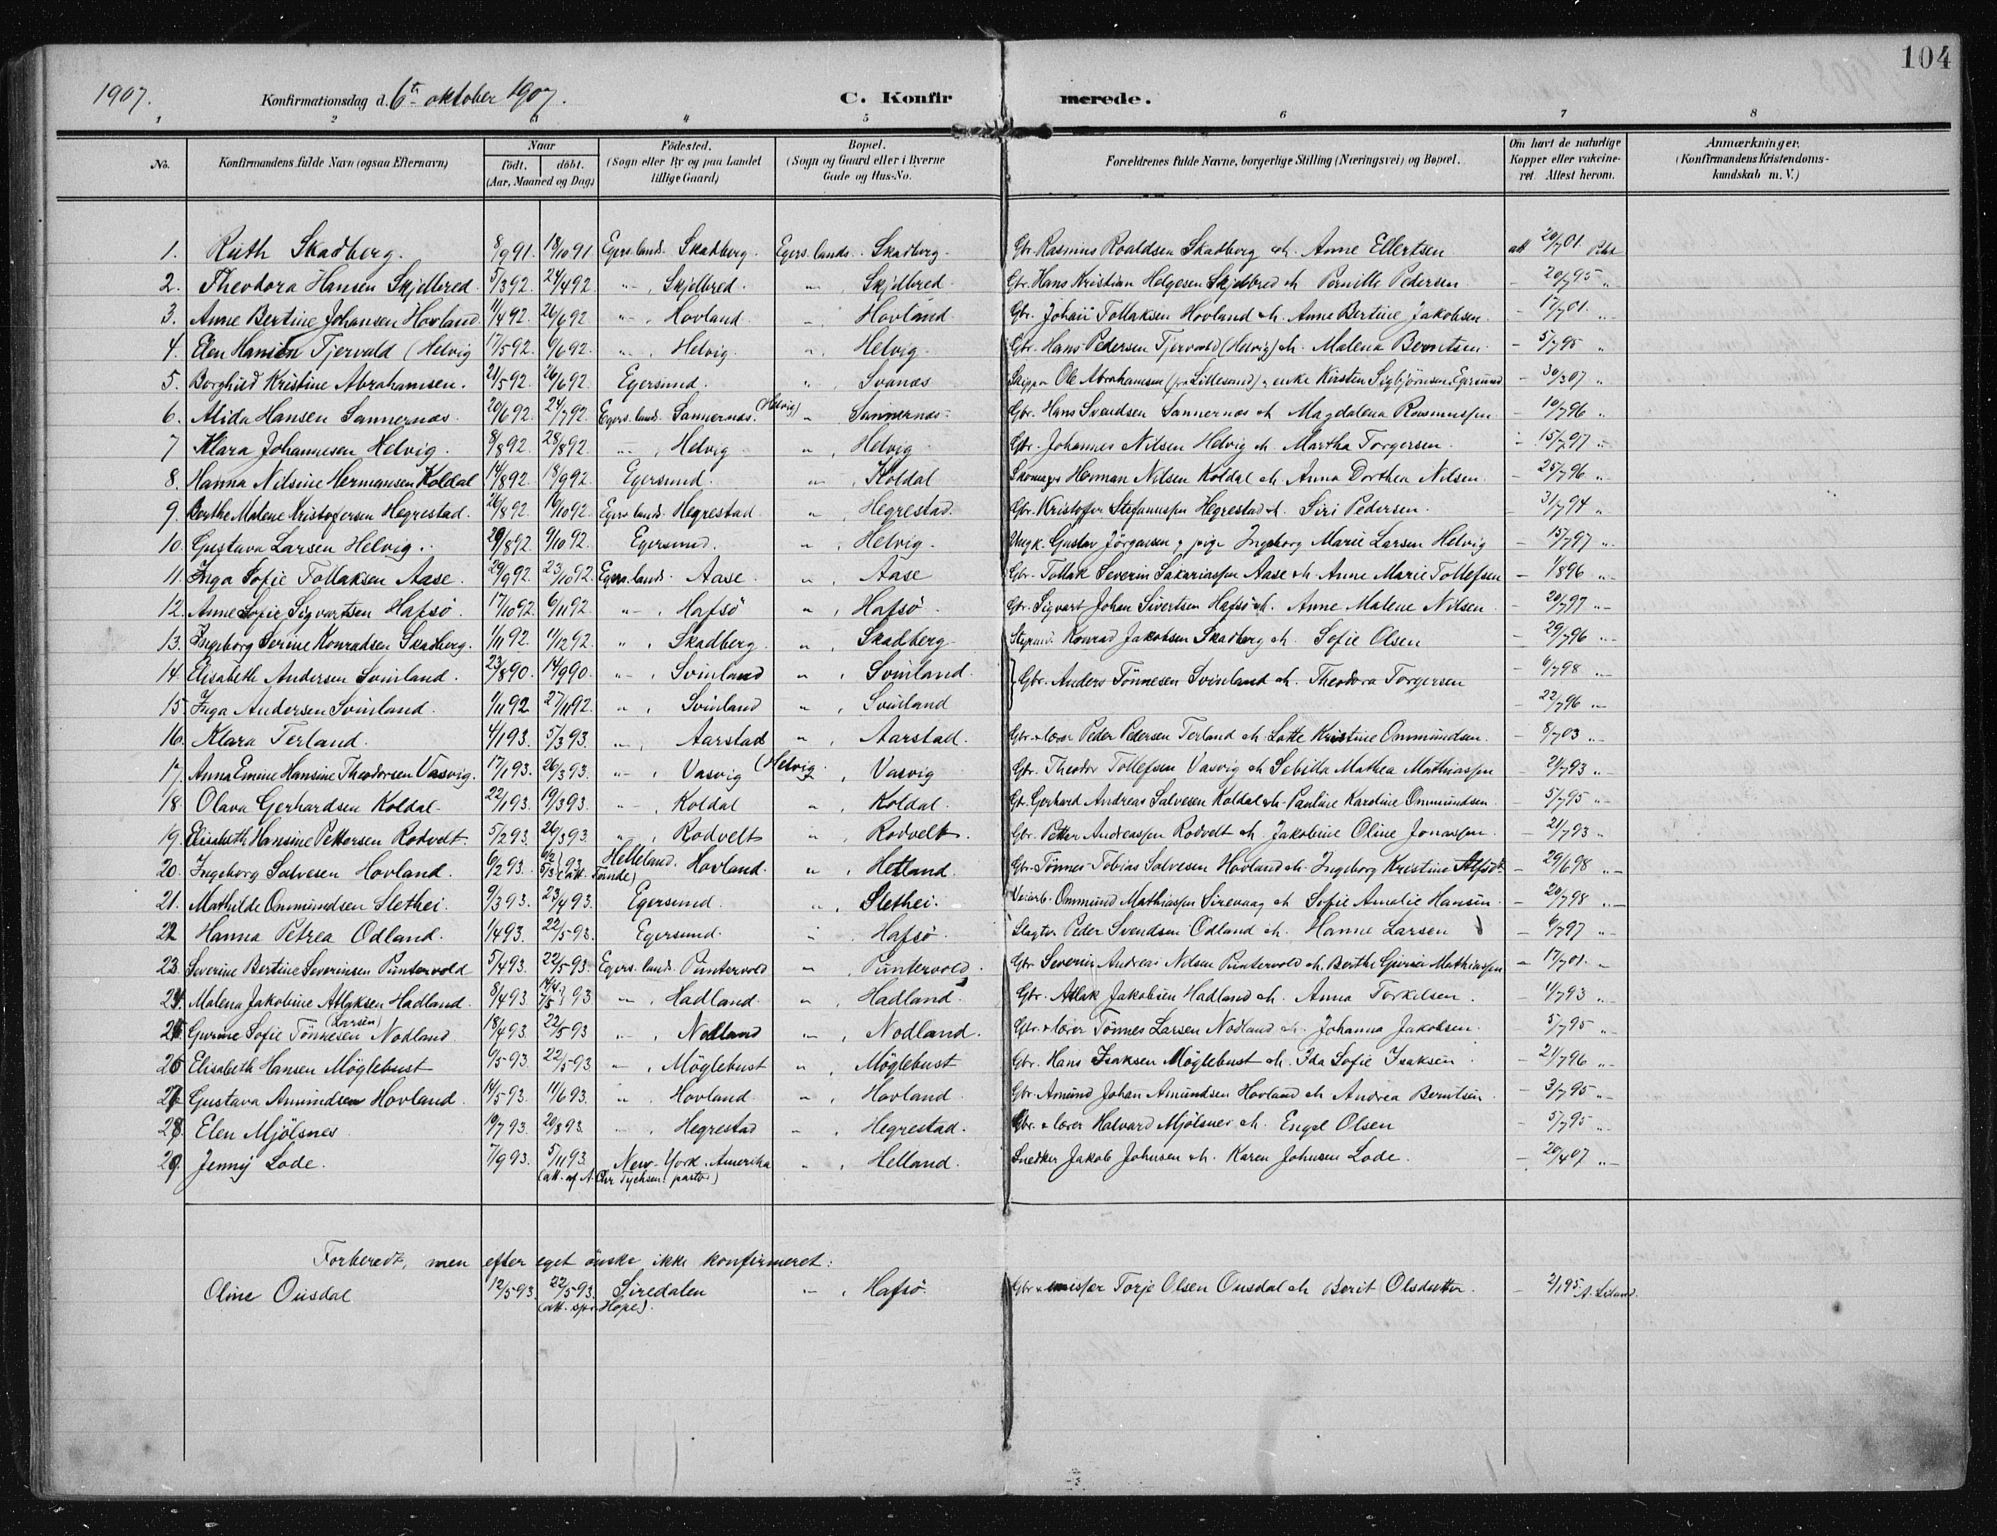 104
1907. Konfirmationsdag d. 6te oktober 1907. C. Konfir merede.
1 2 3 4 5 6 7 8
No. Konfirmandens fulde Navn (ogsaa Efternavn) Naar født, døbt. (Aar, Maaned og Dag) Fødested. (Sogn eller By og paa Landet tillige Gaard) Bopæl. (Sogn og Gaard eller i Byerne Gade og Hus-No. Forældrenes fulde Navne, borgerlige Stilling (Næringsvei) og Bopæl. Om havt de naturlige Kopper eller vakcineret. Attest herom. Anmærkninger. (Konfirmandens Kristendomskundskab m. V.)
1. Ruth Skadberg. 8/9 91 18/10 91 Egers. land. Skadberg. Egers. lands. Skadberg. Gbr. Rasmus Roaldsen Skadberg o.h. Anne Ellertsen att 20/7 01.
2. Theodora Hansen Skjelbred. 5/3 92. 24/4 92. " , Skjelbred. " Skjelbred. Gbr. Hans Kristian Helgesen Skjelbred o.h. Pernille Pedersen – 20/7 95 "
3. Anne Bertine Johansen Hovland. 11/4 92. 26/6 92. " , Hovland. " , Hovland. Gbr. Johan Tollaksen Hovland o.h. Anne Bertine Jakobsen. – 17/7 01. "
4. Elen Hansen Tjervald (Helvig 17/5 92. 6/6 92. " , Helvig. " , Helvig. Gbr. Hans Pedersen Tjervald (Helvig) o.h. Malena Berntsen. – 5/7 95 "
5. Borghild Kristine Abrahamsen. 21/5 92. 26/6 92. Egersund. " , Svanæs Skipper Ole Abrahamsen (fra Lillesand) & enke Kirsten Sigbjørnsen, Egersund – 30/3 07 "
6. Alida Hansen Sannernæs. 20/6 92. 24/7 92. Egers. lands. Sannernæs. (Helvig) " Sannernæs. Gbr. Hans Svendsen Sannernæs o.h. Magdalena Rasmussen – 10/7 96 "
7 Klara Johannesen Helvig. 8/8 92. 28/8 92. " , Helvig " , Helvig Gbr. Johannes Nilsen Helvig o.h. Martha Torgersen. 15/7 97 "
8. Hanna Nilsine Hermansen Koldal 14/8 92. 18/9 92. Egersund. " , Koldal Skomager Herman Nilsen Koldal o.h. Anna Dorthea Nilsen. – 25/7 96 "
9. Berthe Malene Kristofersen Hegrestad. 26/8 92. 16/10 92. Egers. lands. Hegrestad. " , Hegrestad. Gbr. Kristoffer Stefanussen Hegrestad o.h. Siri Pedersen. – 31/7 94 "
10. Gustava Larsen Helvig. 29/8 92. 9/10 92. Egersund. " , Helvig. Ungk. Gustav Jörgensen & pige Ingeborg Marie Larsen Helvig – 15/7 97 "
11. Inga Sofie Tollaksen Aase. 29/9 92. 23/10 92. Egers. lands. Aase. " , Aase Gbr. Tollak Severin Sakariassen Aase o.h. Anne Marie Tollefsen – 1/8 96 "
12. Anne Sofie Sigvartsen Hafsö. 17/10 92. 6/11 92. " , Hafsö " , Hafsö. Gbr. Sigvart Johan Sivertsen Hafsö o.h. Anne Malene Nilsen. – 20/7 97 "
13. Ingeborg Serine Konradsen Skadberg. 1/11 92. 11/12 92. " , Skadberg. " , Skadberg. Konrad Jakobsen Skadberg o.h. Sofie Olsen – 29/7 96 "
14. Elisabeth Andersen Svinland. 23/8 90. 14/9 90. " , Svinland " , Svinland. } Gbr. Anders Tönnesen Svinland o.h. Theodora Torgersen – 6/7 98. "
15. Inga Andersen Svinland. 1/11 92 27/11 92. " , Svinland " , Svinland – 22/7 96 "
16. Klara Terland. 4/1 93. 5/3 93. " , Aarstad " , Aarstad. Gbr. & lærer Peder Pedersen Terland o.h. Lotte Kristine Ommundsen. – 8/7 03 "
17. Anna Emine Hansine Theodorsen Vasvig. 17/1 93. 26/3 93. " , Vasvig (Helvig " , Vasvig Gbr. Theodor Tollefsen Vasvig o.h. Sebilla Mathea Mathiassen – 21/7 93 "
18. Olava Gerhardsen Koldal. 22/1 93. 19/3 93. " , Koldal " , Koldal. Gbr. Gerhard Andreas Salvesen Koldal o.h. Pauline Karoline Ommundsen. – 5/7 95 "
19. Elisabeth Hansine Pettersen Rodvelt. 5/2 93. 26/3 93. " , Rodvelt " , Rodvelt. Gbr. Petter Andreassen Rodvelt o.h. Jakobine Oline Jonassen. – 21/7 93 "
20. Ingeborg Salvesen Hovland. 6/2 93. 6/2 5/3 } 93 (att. Tande) Helleland. Hovland. " , Hetland. Gbr. Tönnes Tobias Salvesen Hovland o.h. Ingeborg Kristine – 29/6 98 "
21. Mathilde Ommundsen Slethei. 9/3 93. 23/4 93. Egersund. " , Slethei. Veiarb. Ommund Mathiassen Sirevaag o.h. Sofie Amalie Hansen. – 20/7 98 "
22 Hanna Petrea Odland. 1/4 93. 22/5 93. Egersund. " Hafsö. Slagter Peder Svendsen Odland o.h. Hanne Larsen – 6/7 97 "
23. Severine Bertine Severinsen Puntervold 5/4 93. 22/5 93. Egers. lands. Puntervold " , Puntervold. Gbr. Severin Andreas Nilsen Puntervold o.h. Berthe Mathiassen – 17/7 01. "
24. Malena Jakobine Atlaksen Hadland. 8/4 93. 14/4 7/5 } 93 " , Hadland. " , Hadland. Gbr. Atlak Jakobsen Hadland o.h. Anna Torkilsen. – 11/7 93 "
25. Gurine Sofie Tönnesen (Larsen) Nodland. 18/4 93. 22/5 93 " , Nodland " , Nodland. Gbr. & lærer Tönnes Larsen Nodland o.h. Johanna Jakobsen. – 5/7 95 "
26 Elisabeth Hansen Möglebust 9/5 93. 22/5 93 " , Möglebust " , Möglebust Gbr. Hans Isaksen Möglebust o.h. Ida Sofie Isaksen – 21/7 96 "
27 Gustava Amundsen Hovland. 14/5 93. 11/6 93. " , Hovland. " , Hovland. Gbr. Amund Johan Amundsen Hovland o.h. Andrea Berntsen – 3/7 95 "
28. Elen Mjölsnes 19/7 93. 20/8 93. " , Hegrestad " , Hegrestad. Gbr. & lærer Halvard Mjölsnes o.h. Engel Olsen – 5/7 95 "
29. Jenny Lode. 7/9 93. 5/11 93. (att. af N. Chr Tychsen, pastor) New-York. Amerika " , Helland. Snedker Jakob Johnsen o.h. Karen Johnsen Lode. – 20/4 07 "
Forberedt, men efter eget önske ikke konfirmeret:
Oline Ousdal 12/5 93. 22/5 93. (att. spr. Hope). Siredalen – , Hafsö. Gbr & Torje Olsen Ousdal o.h. Berit Olsdatter. – 2/1 95